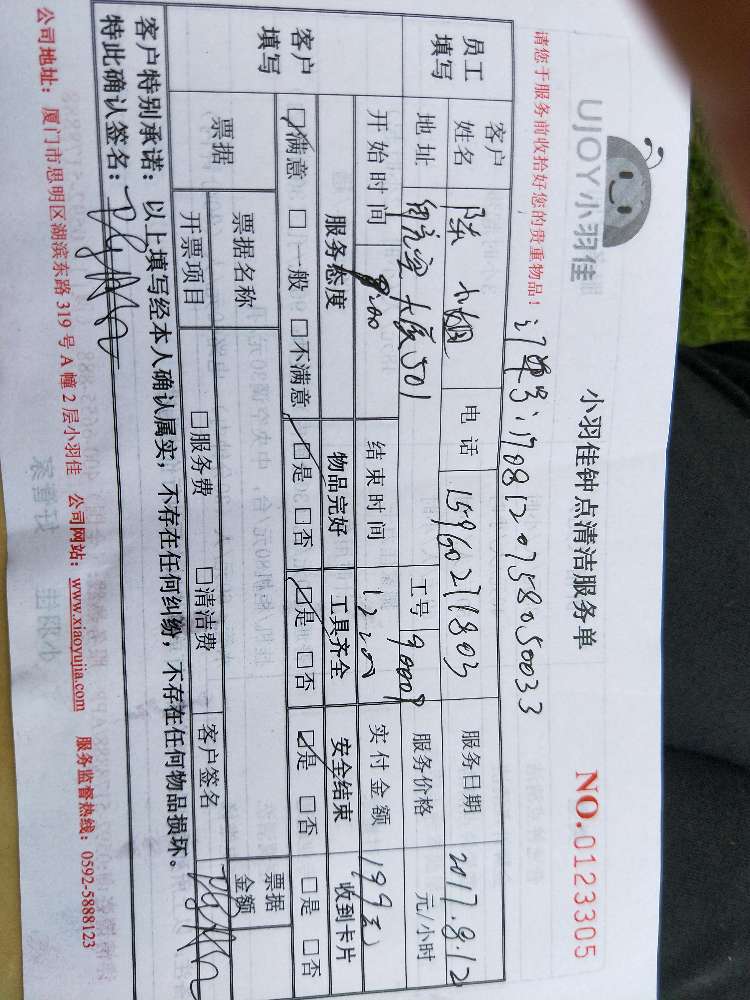 UJOY小羽佳
小羽佳钟点清洁服务单
NO.0123305
请您于服务前收拾好您的贵重物品！
订单号：1708120758050033
员工填写
客户姓名 陈小姐 电话 15960271803 服务日期 2017.8.12
地址 大厦501 工号 90009 服务价格 元/小时
开始时间 结束时间 实付金额 199元
客户填写
服务态度 物品完好 工具齐全 安全结束 收到卡片
☑满意 □一般 □不满意 ☑是 □否 ☑是 □否 ☑是 □否 □是 □否
票据 票据名称 票据金额
开票项目 □服务费 □清洁费 客户签名
客户特别承诺：以上填写经本人确认属实，不存在任何纠纷，不存在任何物品损坏。
特此确认签名：
公司地址：厦门市思明区湖滨东路319号A幢2层小羽佳 公司网站：www.xiaoyujia.com 服务监督热线：0592-5888123